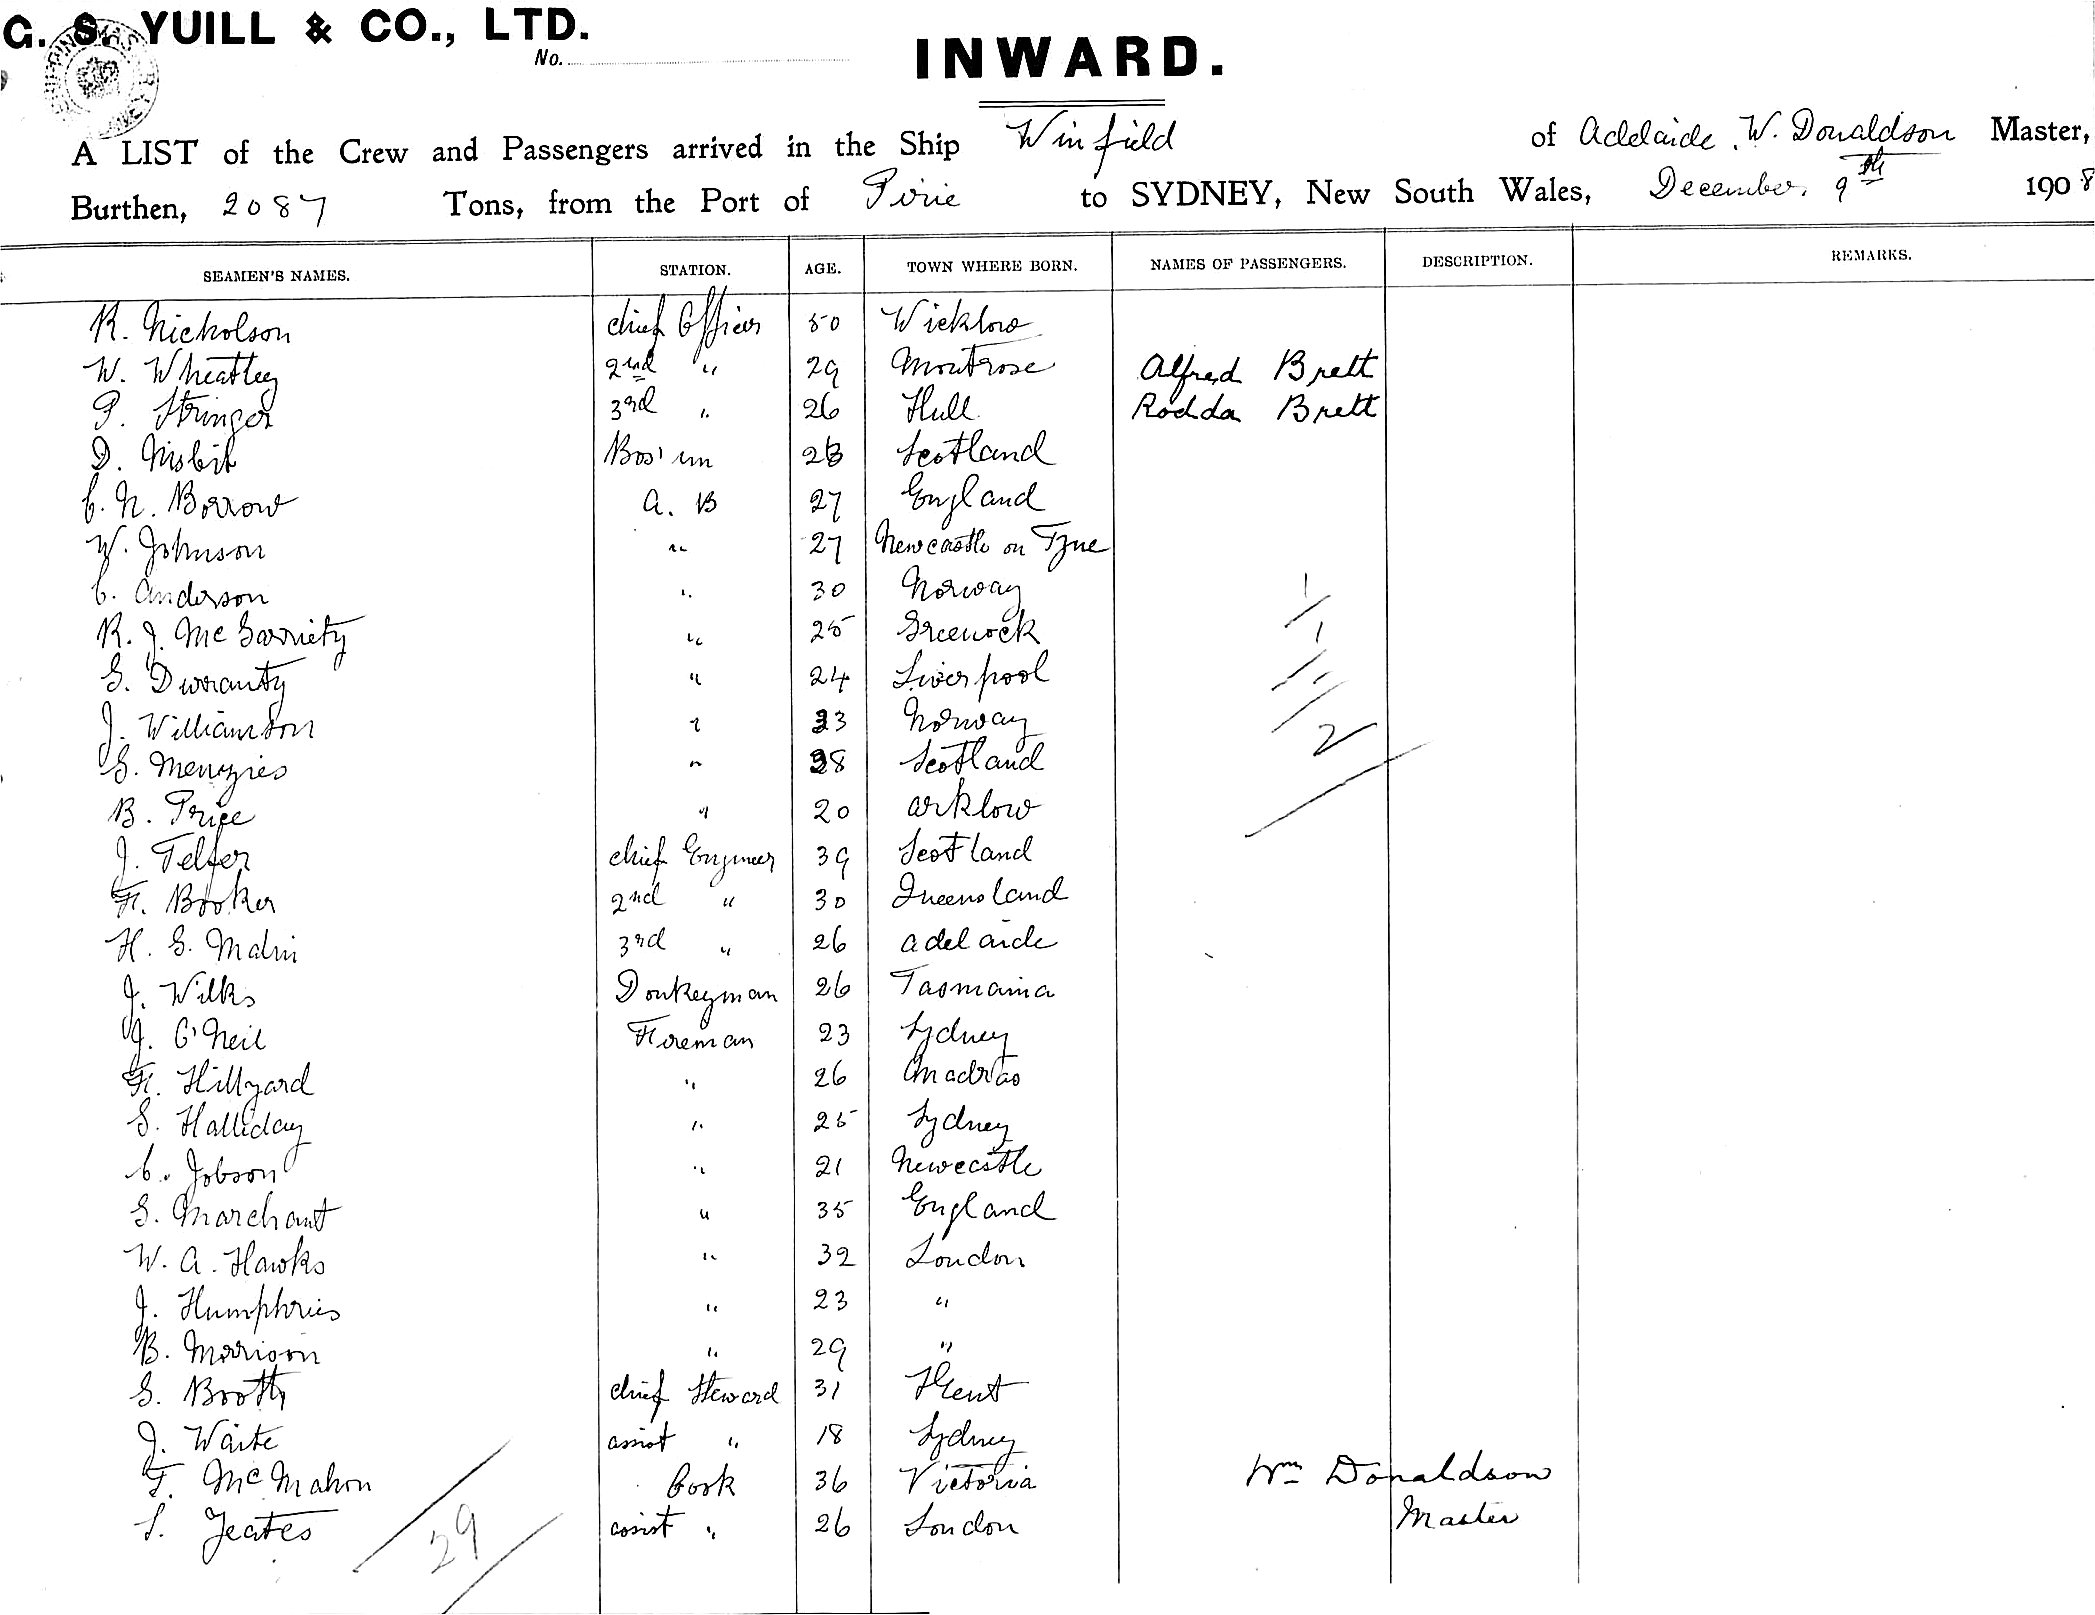 G. S. YUILL & CO., LTD.
No.
INWARD.
A LIST of the Crew and Passengers arrived in the Ship Winfield of Adelaide. W. Donaldson Master,
Burthen, 2087 Tons, from the Port of Pirie to SYDNEY, New South Wales, December, 9th 1908
SEAMEN'S NAMES. STATION. AGE. TOWN WHERE BORN. NAMES OF PASSENGERS. DESCRIPTION. REMARKS.
R. Nicholson chief Officer 50 Wicklow
W. Wheatley 2nd " 29 Montrose Alfred Brett
P. Stringer 3rd " 26 Hull Rodda Brett
D. Nisbit Bos'un Scotland
C. N. Borrow A. B 27 England
W. Johnson " 27 Newcastle on Tyne
C. Anderson " 30 Norway
R. J. McGarriety " 25 Greenock
G. Durranty " 24 Liverpool
J. Williamson " 33 Norway
G. Menzies " 38 Scotland
B. Price " 20 Arklow
J. Telfer chief Engineer 39 Scotland
F. Booker 2nd " 30 Queensland
H. G. 3rd " 26 Adelaide
J. Wilks Donkeyman 26 Tasmania
J. O'Neil Fireman 23 Sydney
F. Hillyard " 26 Madras
G. Halliday " 25 Sydney
C. Jobson " 21 Newcastle
G. Marchant " 35 England
W. A. Hawks " 32 London
J. Humphries " 23 "
B. Morrison " 29 "
G. Booth chief Steward 31 Kent
J. Waite assist " 18 Sydney
T. McMahon Cook 36 Victoria Wm Donaldson
S. Yeates assist " 26 London Master
29
2